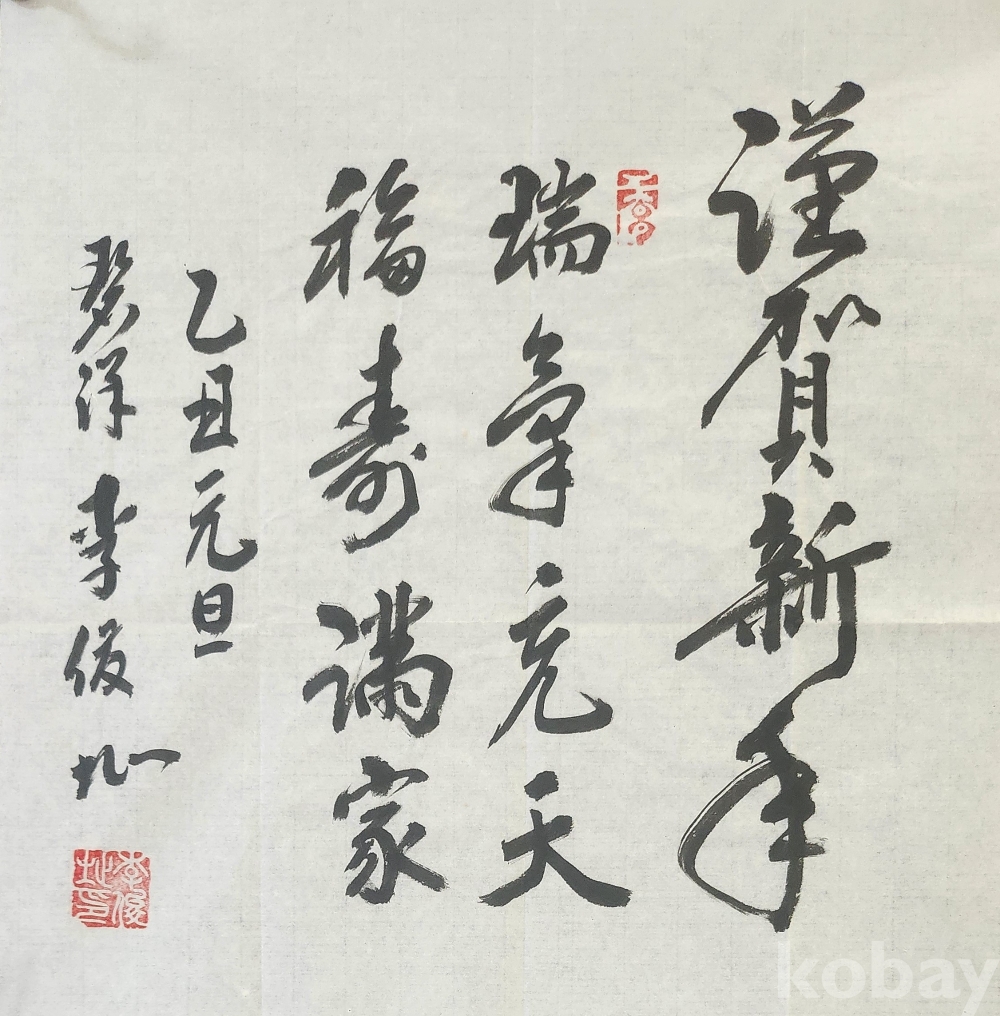 謹賀新年
瑞氣充天
福壽滿家
乙丑元旦
碧洋 李俊址
李俊址印
kobay